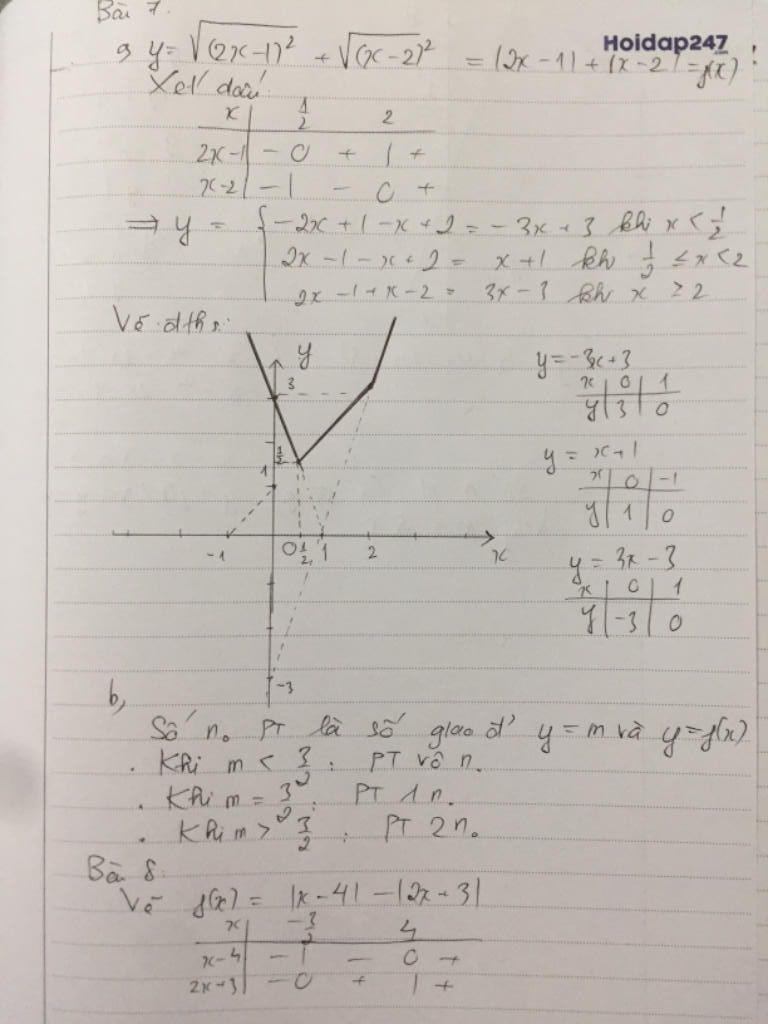 Bài 7.
Hoidap247
a, y = √(2x-1)² + √(x-2)² = |2x-1| + |x-2| = f(x)
Xét dấu:
x | 1/2 2
2x-1 | - 0 + | +
x-2 | - | - 0 +
⇒ y = { -2x+1-x+2 = -3x+3 khi x < 1/2
2x-1-x+2 = x+1 kh 1/2 ≤ x < 2
2x-1+x-2 = 3x-3 kh x ≥ 2
Vẽ đths:
y
3
3/2
1
-1 O 1/2 1 2 x
-3
y = -3x+3
x | 0 | 1
y | 3 | 0
y = x+1
x | 0 | -1
y | 1 | 0
y = 3x-3
x | 0 | 1
y | -3 | 0
b,
Số n0 PT là số giao đ' y = m và y = f(x)
. Khi m < 3/2 : PT vô n.
. Khi m = 3/2 : PT 1 n.
. Khi m > 3/2 : PT 2 n0
Bài 8.
Vẽ f(x) = |x-4| - |2x+3|
x | -3/2 4
x-4 | - | - 0 +
2x+3 | - 0 + | +